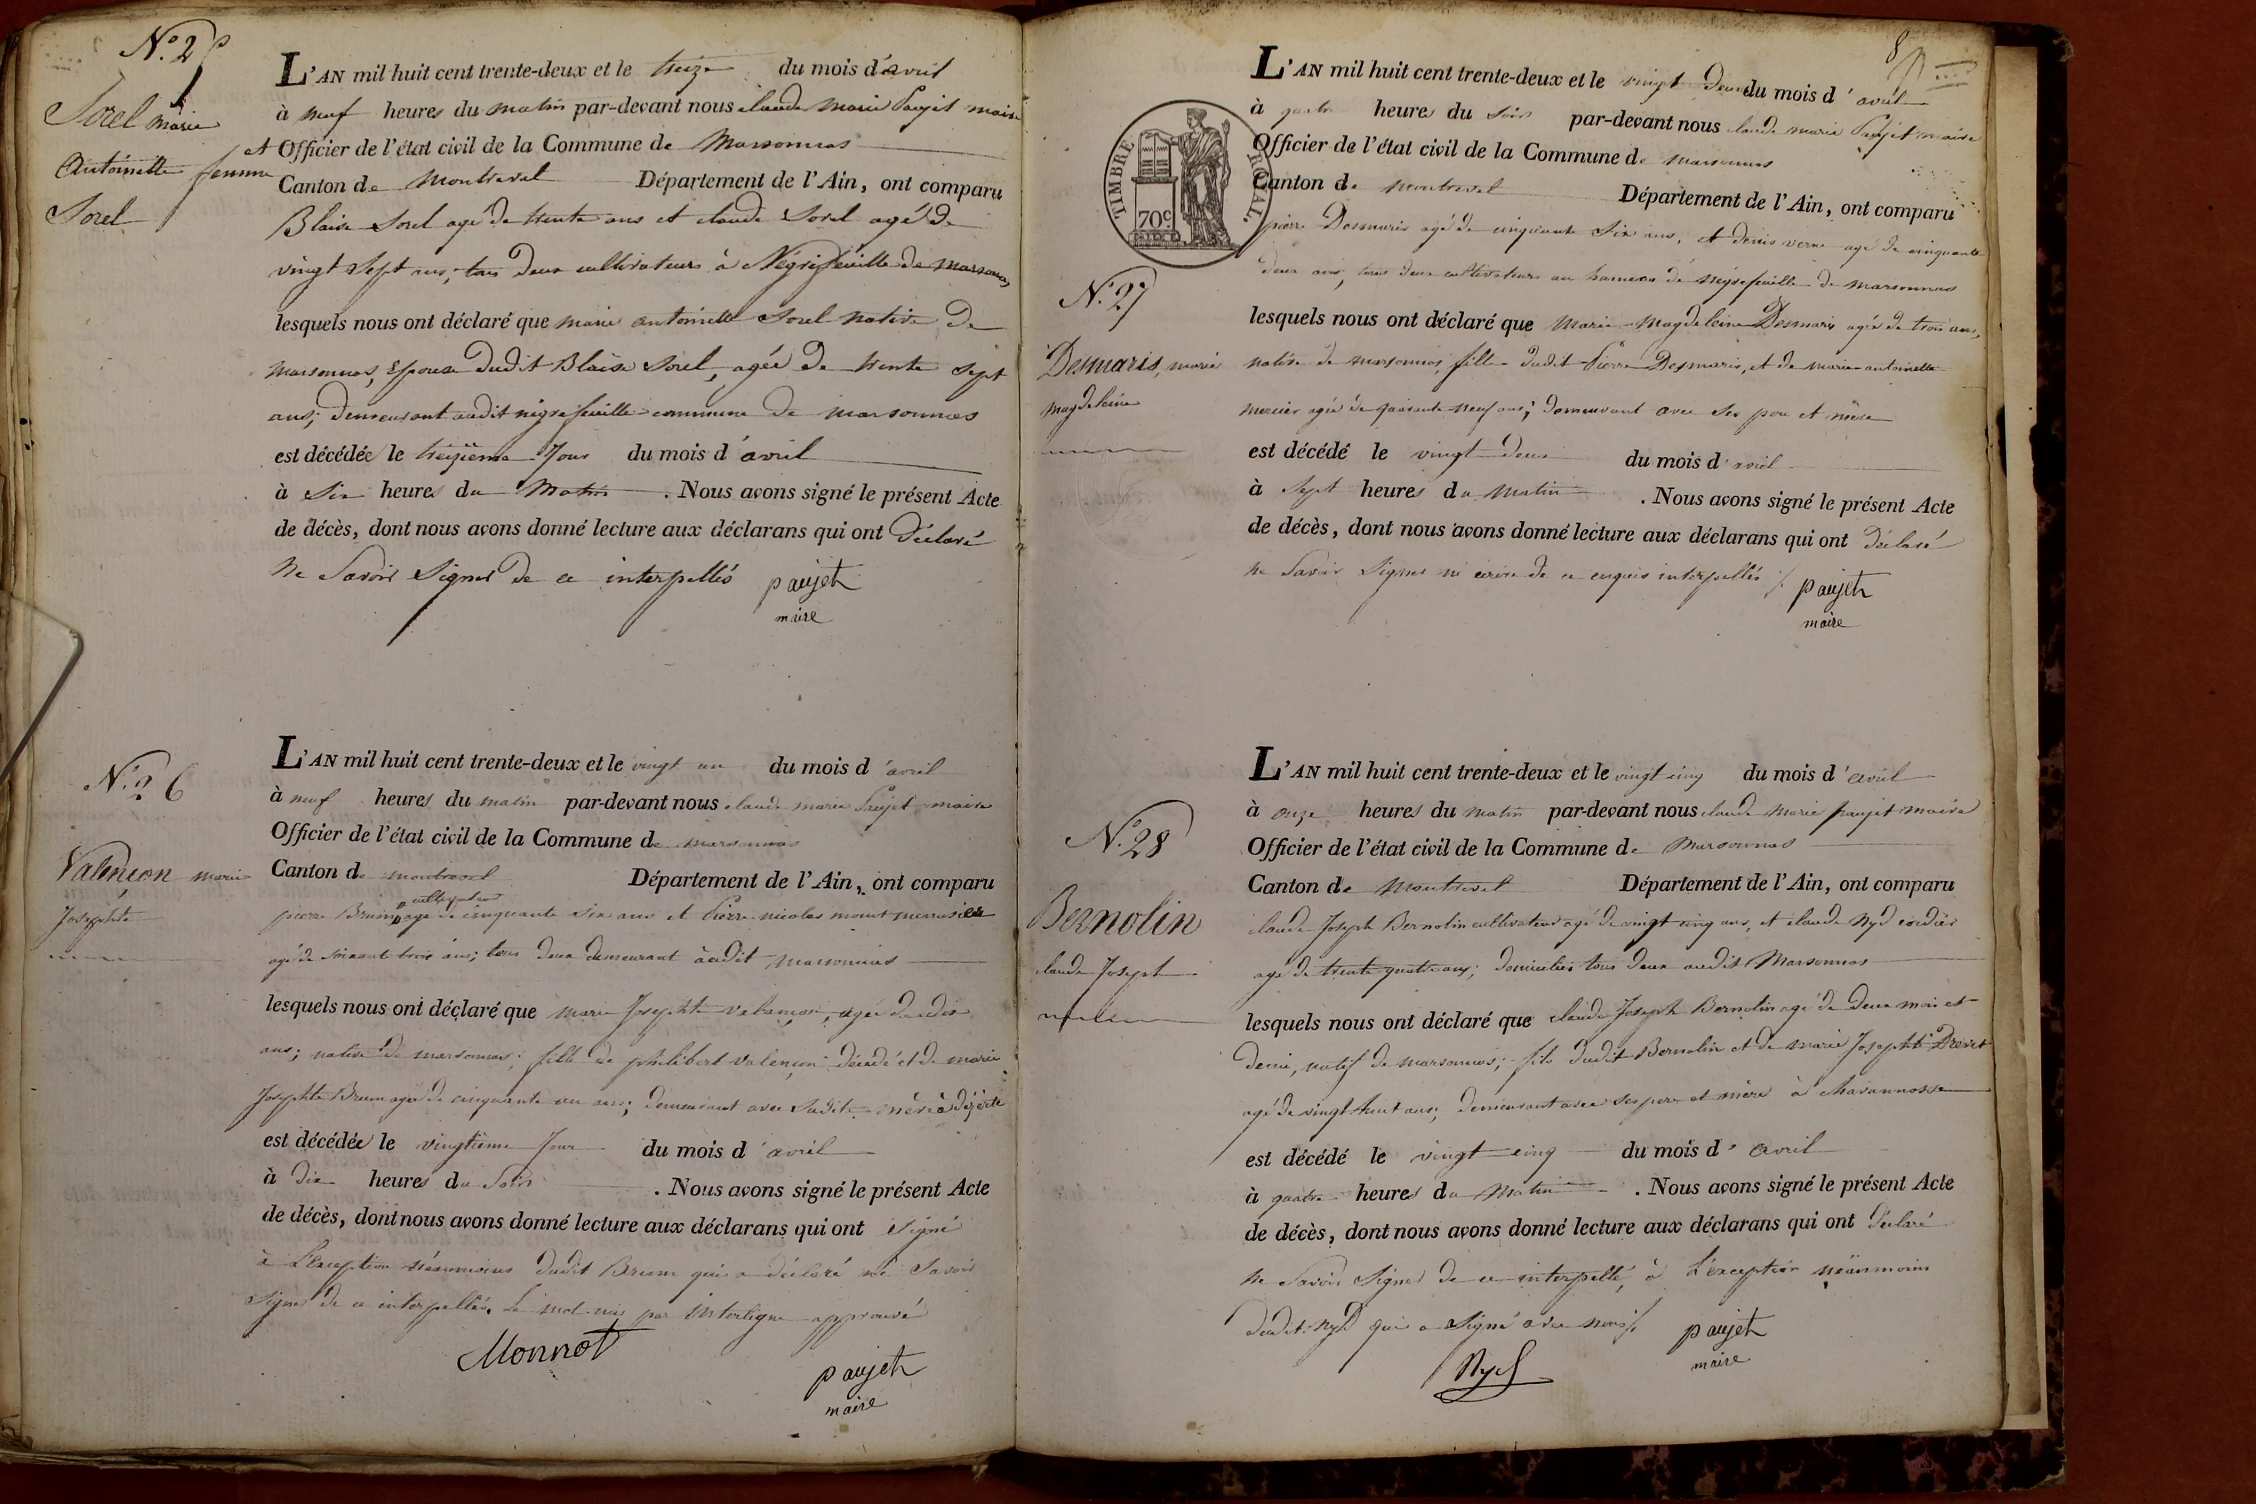 L'AN mil huit cent trente-deux et le treize du mois d'avril
à neuf heures du matin par-devant nous claude marie Paujet maire
et Officier de l'état civil de la Commune de Marsonnas
Canton de Montrevel Département de l'Ain, ont comparu
Blaise Sorel agé de trente ans et claude Sorel agé de
vingt sept ans, tous deux cultivateurs à Négrefeuille de marsonnas,
lesquels nous ont déclaré que marie antoinette Sorel native de
marsonnas, Epouse dudit Blaise Sorel, agée de trente sept
ans; demeurant audit négrefeuille commune de marsonnas
est décédée le treizieme Jour du mois d'avril
à Six heures du Matin . Nous avons signé le présent Acte
de décès, dont nous avons donné lecture aux déclarans qui ont déclaré
ne Savoir Signer de ce interpellés paujet
maire
Sorel marie
antoinette femme
Sorel
N.° 26
Valençon marie
Josephte
L'AN mil huit cent trente-deux et le vingt un du mois d'avril
à neuf heures du matin par-devant nous claude marie Paujet maire
Officier de l'état civil de la Commune de marsonnas
Canton de montrevel Département de l'Ain, ont comparu
cultivateur
pierre Brunn agé de cinquante Six ans et Pierre nicolas monnot menuisier
agé de soixante trois ans; tous deux demeurant àudit marsonnas
lesquels nous ont déclaré que marie Josephte valençon, agée de dix
ans; native de marsonnas; fille de philibert valençon décédé et de marie
Josephte Brunn agée de cinquante un ans; demeurant avec Sadite mère
est décédée le vingtieme Jour du mois d'avril
à dix heures du Soir . Nous avons signé le présent Acte
de décès, dont nous avons donné lecture aux déclarans qui ont Signé
à L'exception néanmoins dudit Brunn qui a déclaré ne Savoir
Signer de ce interpellé. Le mot mis par interligne approuvé
Monnot
paujet
maire
8
TIMBRE ROYAL.
70c
N.° 27
Desmaris, marie
magdeleine
L'AN mil huit cent trente-deux et le vingt deux du mois d'avril
à quatre heures du Soir par-devant nous claude marie Paujet maire
Officier de l'état civil de la Commune de marsonnas
Canton de montrevel Département de l'Ain, ont comparu
pierre Desmaris agé de cinquante Six ans, et denis verne agé de cinquante
deux ans, tous deux cultivateurs au hameau de négrefeuille de marsonnas
lesquels nous ont déclaré que Marie-Magdeleine Desmaris agée de trois ans,
native de marsonnas, fille dudit Pierre Desmaris, et de marie-antoinette
mercier agée de quarante neuf ans; demeurant avec Ses pere et mère
est décédé le vingt deux du mois d'avril
à Sept heures du Matin . Nous avons signé le présent Acte
de décès, dont nous avons donné lecture aux déclarans qui ont déclaré
ne Savoir Signer ni écrire de ce enquis interpellés paujet
maire
N.° 28
Bernolin
claude Joseph
L'AN mil huit cent trente-deux et le vingt cinq du mois d'avril
à onze heures du matin par-devant nous claude Marie paujet maire
Officier de l'état civil de la Commune de Marsonnas
Canton de Montrevel Département de l'Ain, ont comparu
claude Joseph Bernolin cultivateur agé de vingt cinq ans, et claude Nyd cordier
agé de trente quatre ans; domiciliés tous deux audit Marsonnas
lesquels nous ont déclaré que claude Joseph Bernolin agé de deux mois et
demi, natif de marsonnas; fils dudit Bernolin et de marie Josephte Drevet
agé de vingt huit ans; demeurant avec Ses pere et mère à Chavannosse
est décédé le vingt cinq du mois d'avril
à quatre heures du Matin . Nous avons signé le présent Acte
de décès, dont nous avons donné lecture aux déclarans qui ont déclaré
ne Savoir Signer de ce interpellé, à L'exception néanmoins
dudit Nyd qui a Signé avec nous paujet
maire
Nyd